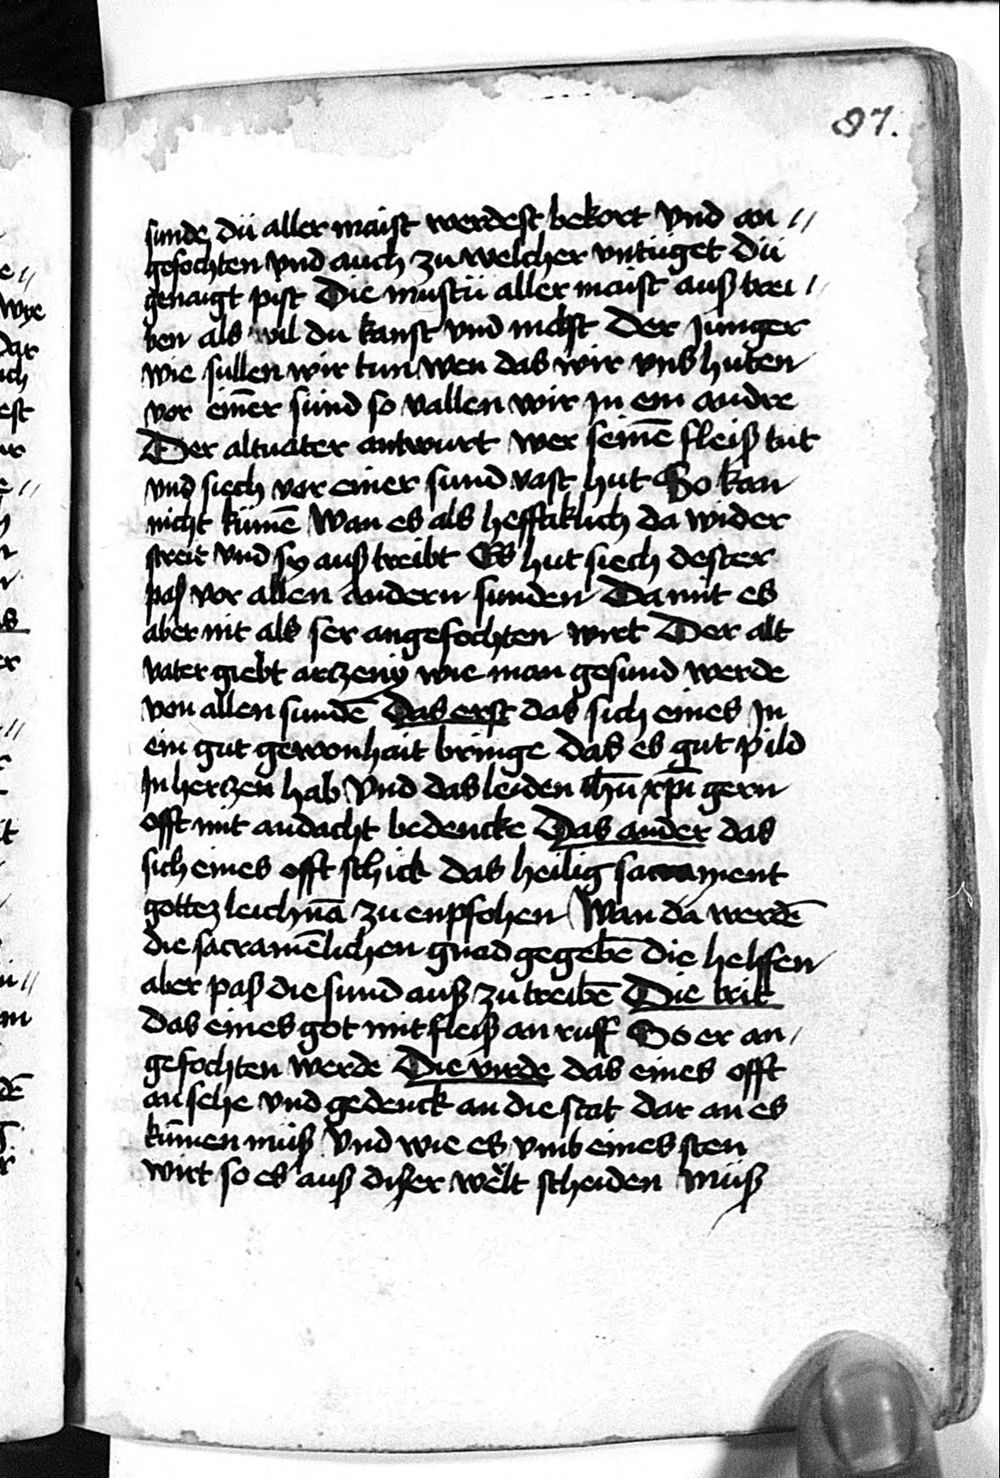 87.
sunde dü aller maist werdest bekort vnd an //
gefochten vnd auch zu welcher vntuget dü
genaigt pist Die mustü aller maist auß trei /
ben als vil du kanst vnd machst Der junger
wie süllen wir tun wen das wir vns huten
vor eiñer sünd so vallen wir jn ein andre
Der altuater antwurt wer seinē fleiß tut
vnd siech vor einer sund vast hut So kan
nicht kümē Wan es als hefftiklich da wider
streit vnd sy auß treibt Es hut siech dester
paß vor allen andern sunden Damit es
aber nit als ser angefochten wirt Der alt
vater giebt arczeny wie man gesund werde
von allen sundē Das erst das sich eines jn
ein gut gewonhait bringe Das es gut pild
jn herczen hab vnd das leiden ihū xpī gern
offt mit andacht bedencke Das ander das
sich eines offt schick das heilig sacrament
gottez leichnā zu enpfohen Wan da werdē
die sacramēlichen gnad gegebē die helffen
aber paß die sund auß zu treibē Die drit
das eines got mit fleiß an ruff So er an /
gefochten werde Die virde das eines offt
an sehe vnd gedenck an die stat dar an es
kūmen müß vnd wie es vmb eines sten
wirt so es auß diser welt scheiden müß